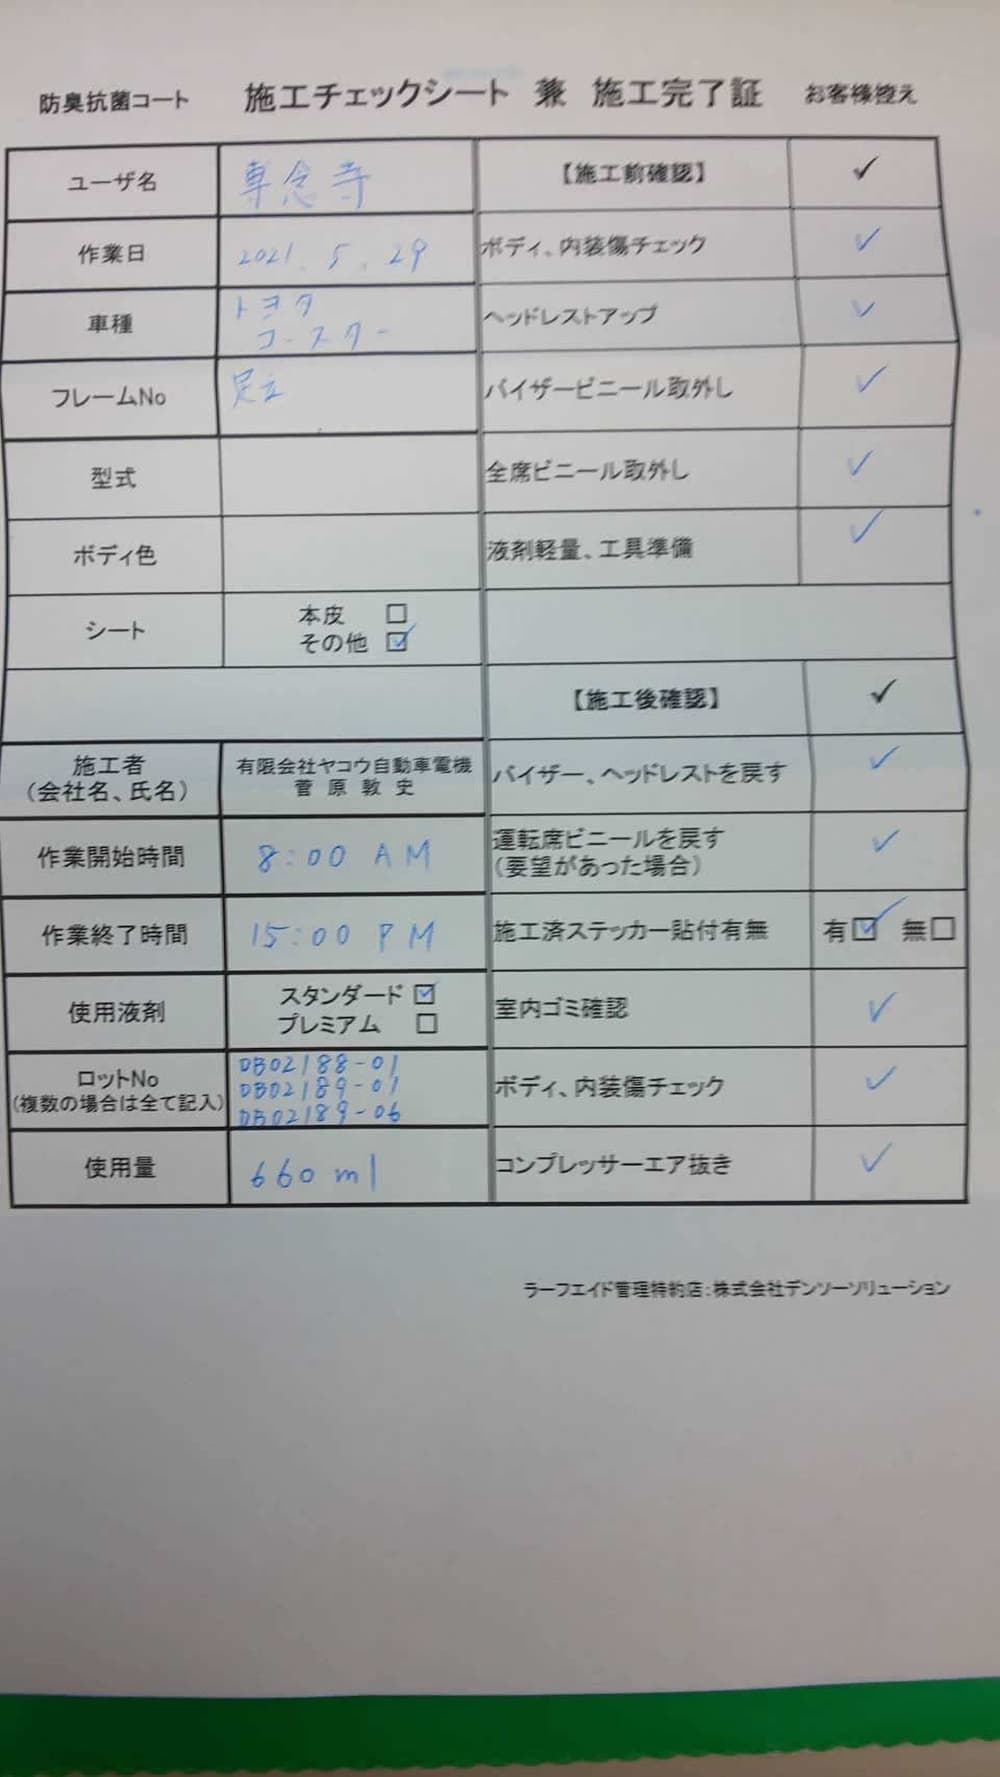 防臭抗菌コート 施工チェックシート 兼 施工完了証 お客様控え
ユーザ名 専念寺 【施工前確認】 ✓
作業日 2021. 5. 29 ボディ、内装傷チェック ✓
車種 トヨタ
コースター ヘッドレストアップ ✓
フレームNo 足立 バイザービニール取外し ✓
型式 全席ビニール取外し ✓
ボディ色 液剤軽量、工具準備 ✓
シート 本皮 □
その他 ☑
【施工後確認】 ✓
施工者
(会社名、氏名) 有限会社ヤコウ自動車電機
菅原敦史 バイザー、ヘッドレストを戻す ✓
作業開始時間 8:00 AM 運転席ビニールを戻す
(要望があった場合) ✓
作業終了時間 15:00 PM 施工済ステッカー貼付有無 有☑ 無□
使用液剤 スタンダード ☑
プレミアム □ 室内ゴミ確認 ✓
ロットNo
(複数の場合は全て記入) DB02188-01
DB02189-01
DB02189-06 ボディ、内装傷チェック ✓
使用量 660ml コンプレッサーエア抜き ✓
ラーフエイド管理特約店:株式会社デンソーソリューション